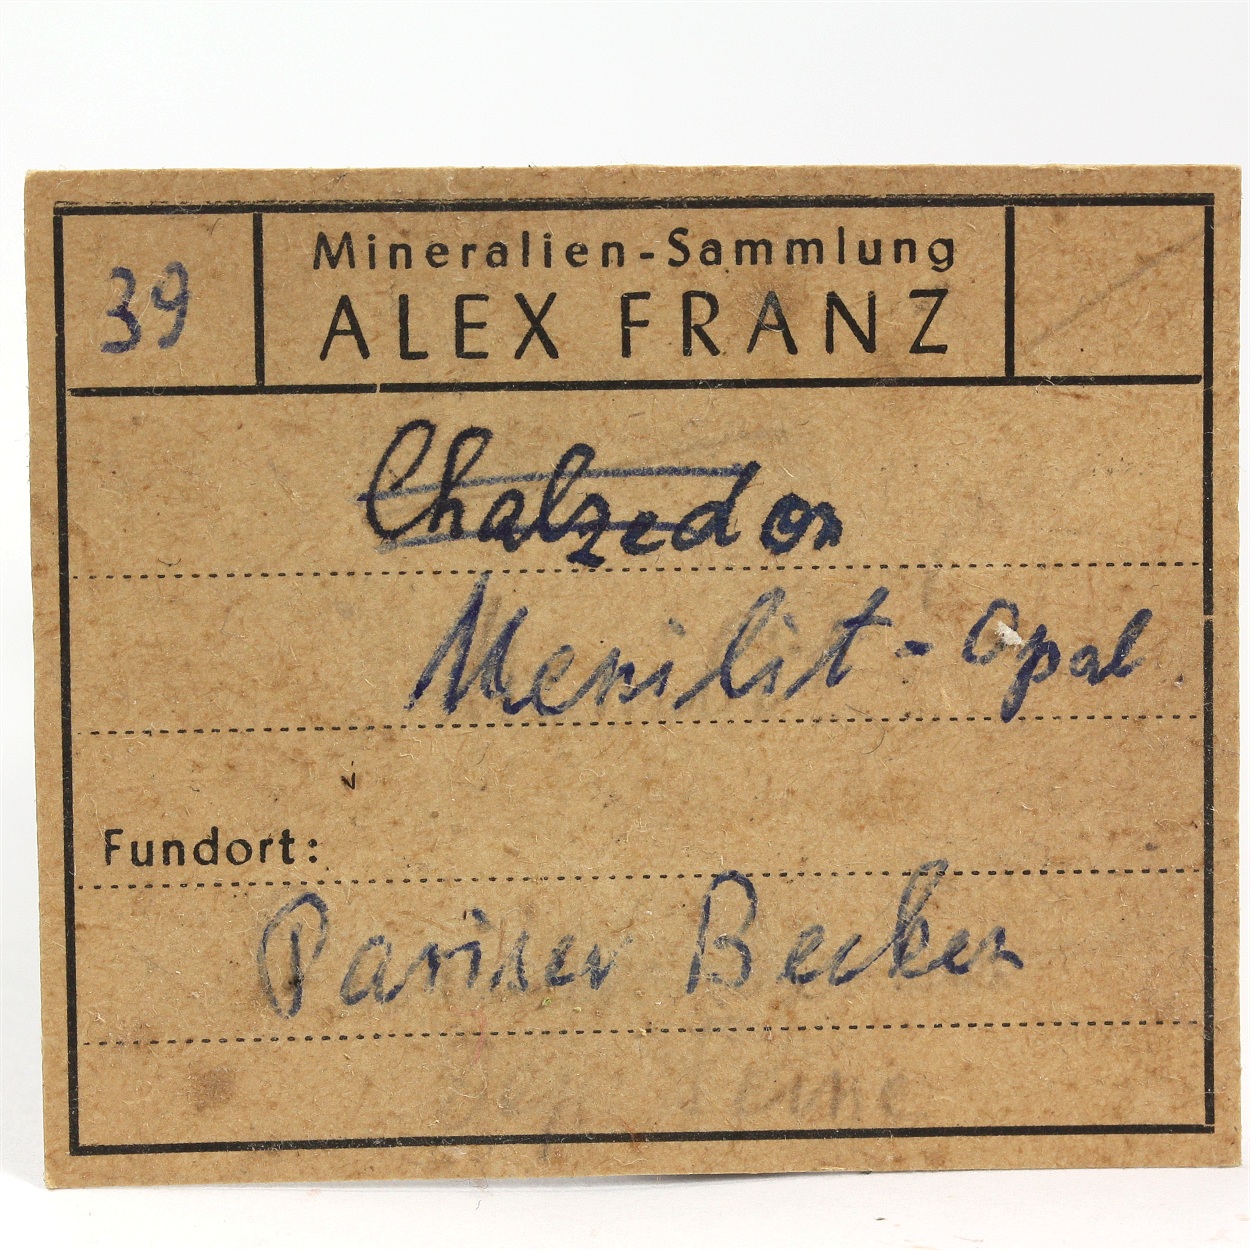 39
Mineralien-Sammlung
ALEX FRANZ
Chalzedon
Menilit - Opal.
Fundort:
Pariser Becken